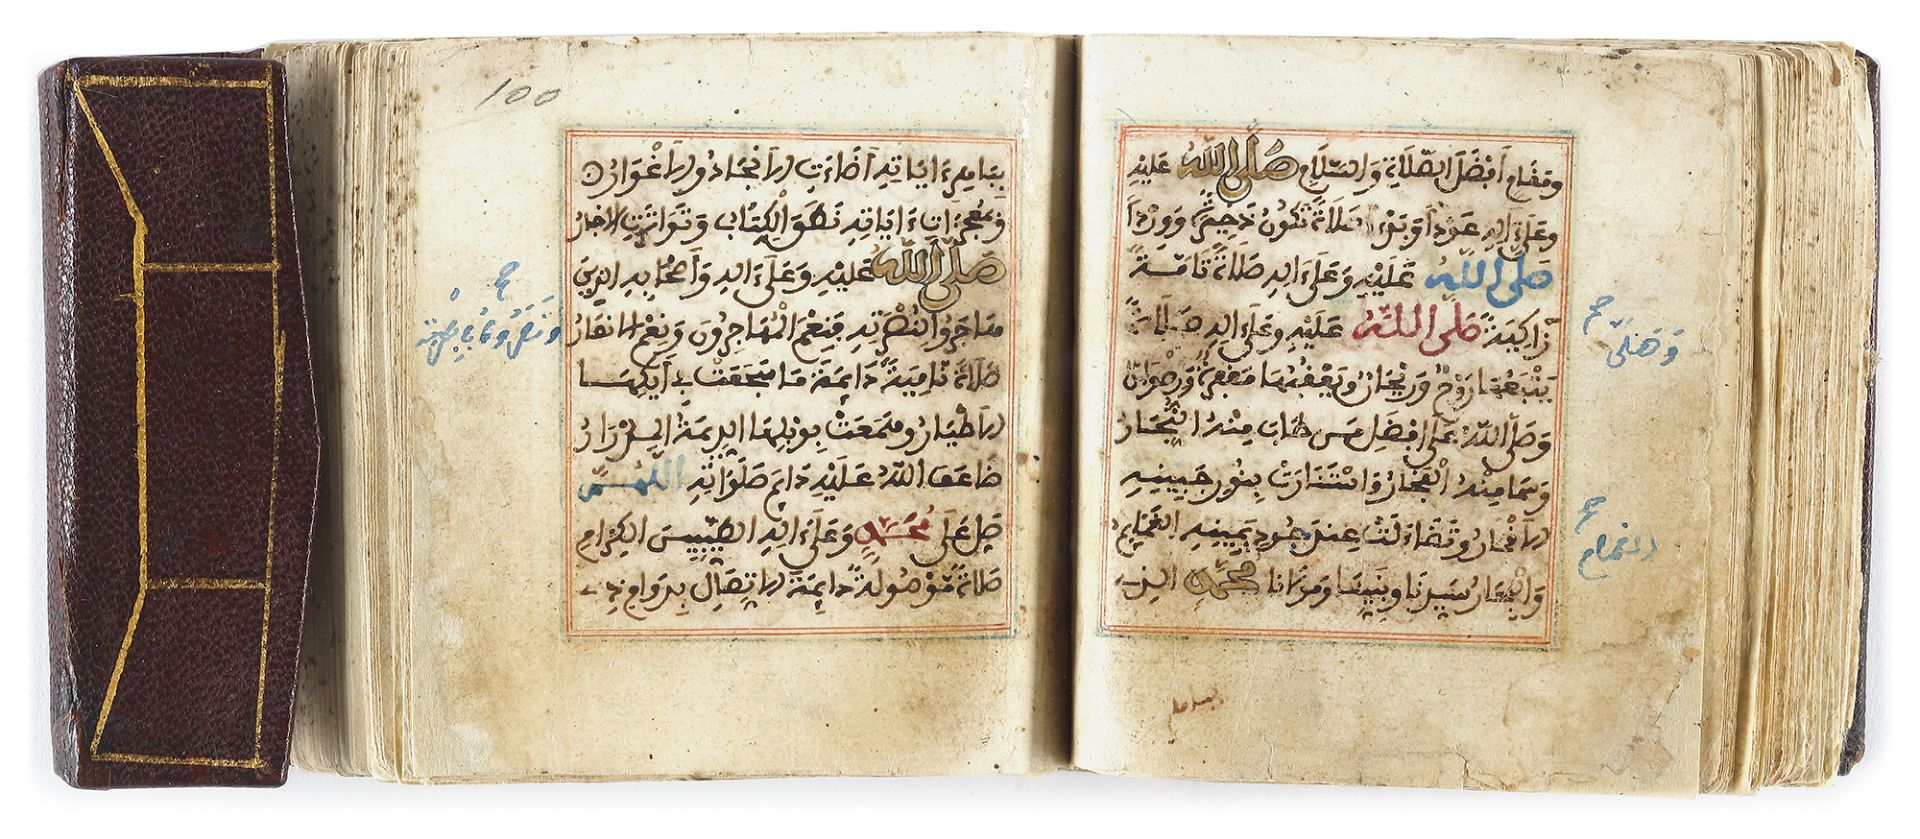 ومقام أفضل الصلاة والسلام صلى الله عليه
وعلى اله عودا وبدءا صلاة تكون ذخيرة ووردا
صلى الله عليه وعلى اله صلاة تامة
زاكية صلى الله عليه وعلى اله صلاة
يتبعها روح وريحان ويعقبها مغفرة ورضوان
وصلى الله على افضل من طاب منه النجار
وسما به الفخار واستنارت بنور جبينه
الاقمار وتضاءلت عند جود يمينه الغمائم
والبحار سيدنا ونبينا ومولانا محمد الذي
وصلى
المقام
100
بباهر ءاياته اضاءت الانجاد والاغوار
وبمعجزات ءاياته نطق الكتاب وتواترت الاخبار
صلى الله عليه وعلى اله وأصحابه الذين
هاجروا لنصرته فنعم المهاجرون ونعم الانصار
صلاة نامية دايمة ما سجعت في أيكها
الاطيار وهمعت بوبلها الديمة المدرار
ضاعف الله عليه دايم صلواته اللهم
صل على محمد وعلى اله الطيبين الكرام
صلاة موصولة دايمة الاتصال بدوام ذي